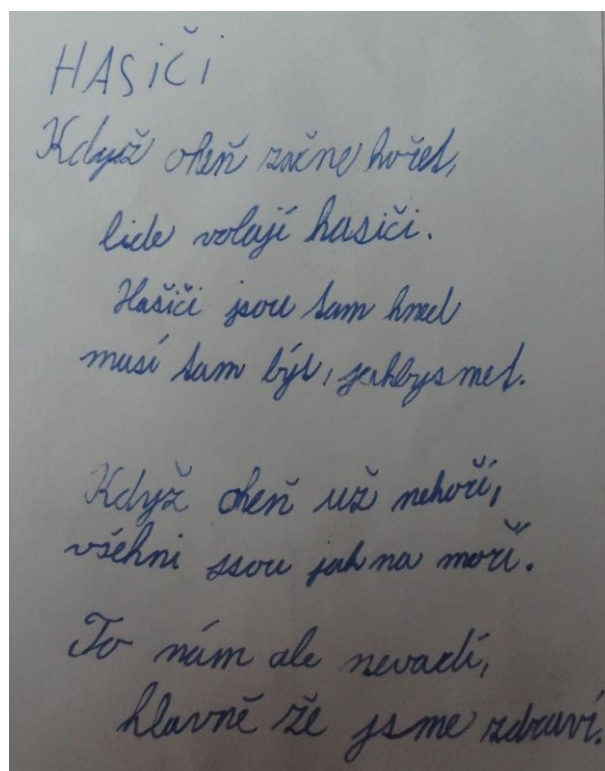 HASiČi
Když oheň začne hořet,
lide volají hasiči.
Hašiči jsou tam hned
musí tam být, jakbysmet.
Když oheň už nehoří,
všehni jsou jak na moři.
To nám ale nevadí,
hlavně že jsme zdraví.